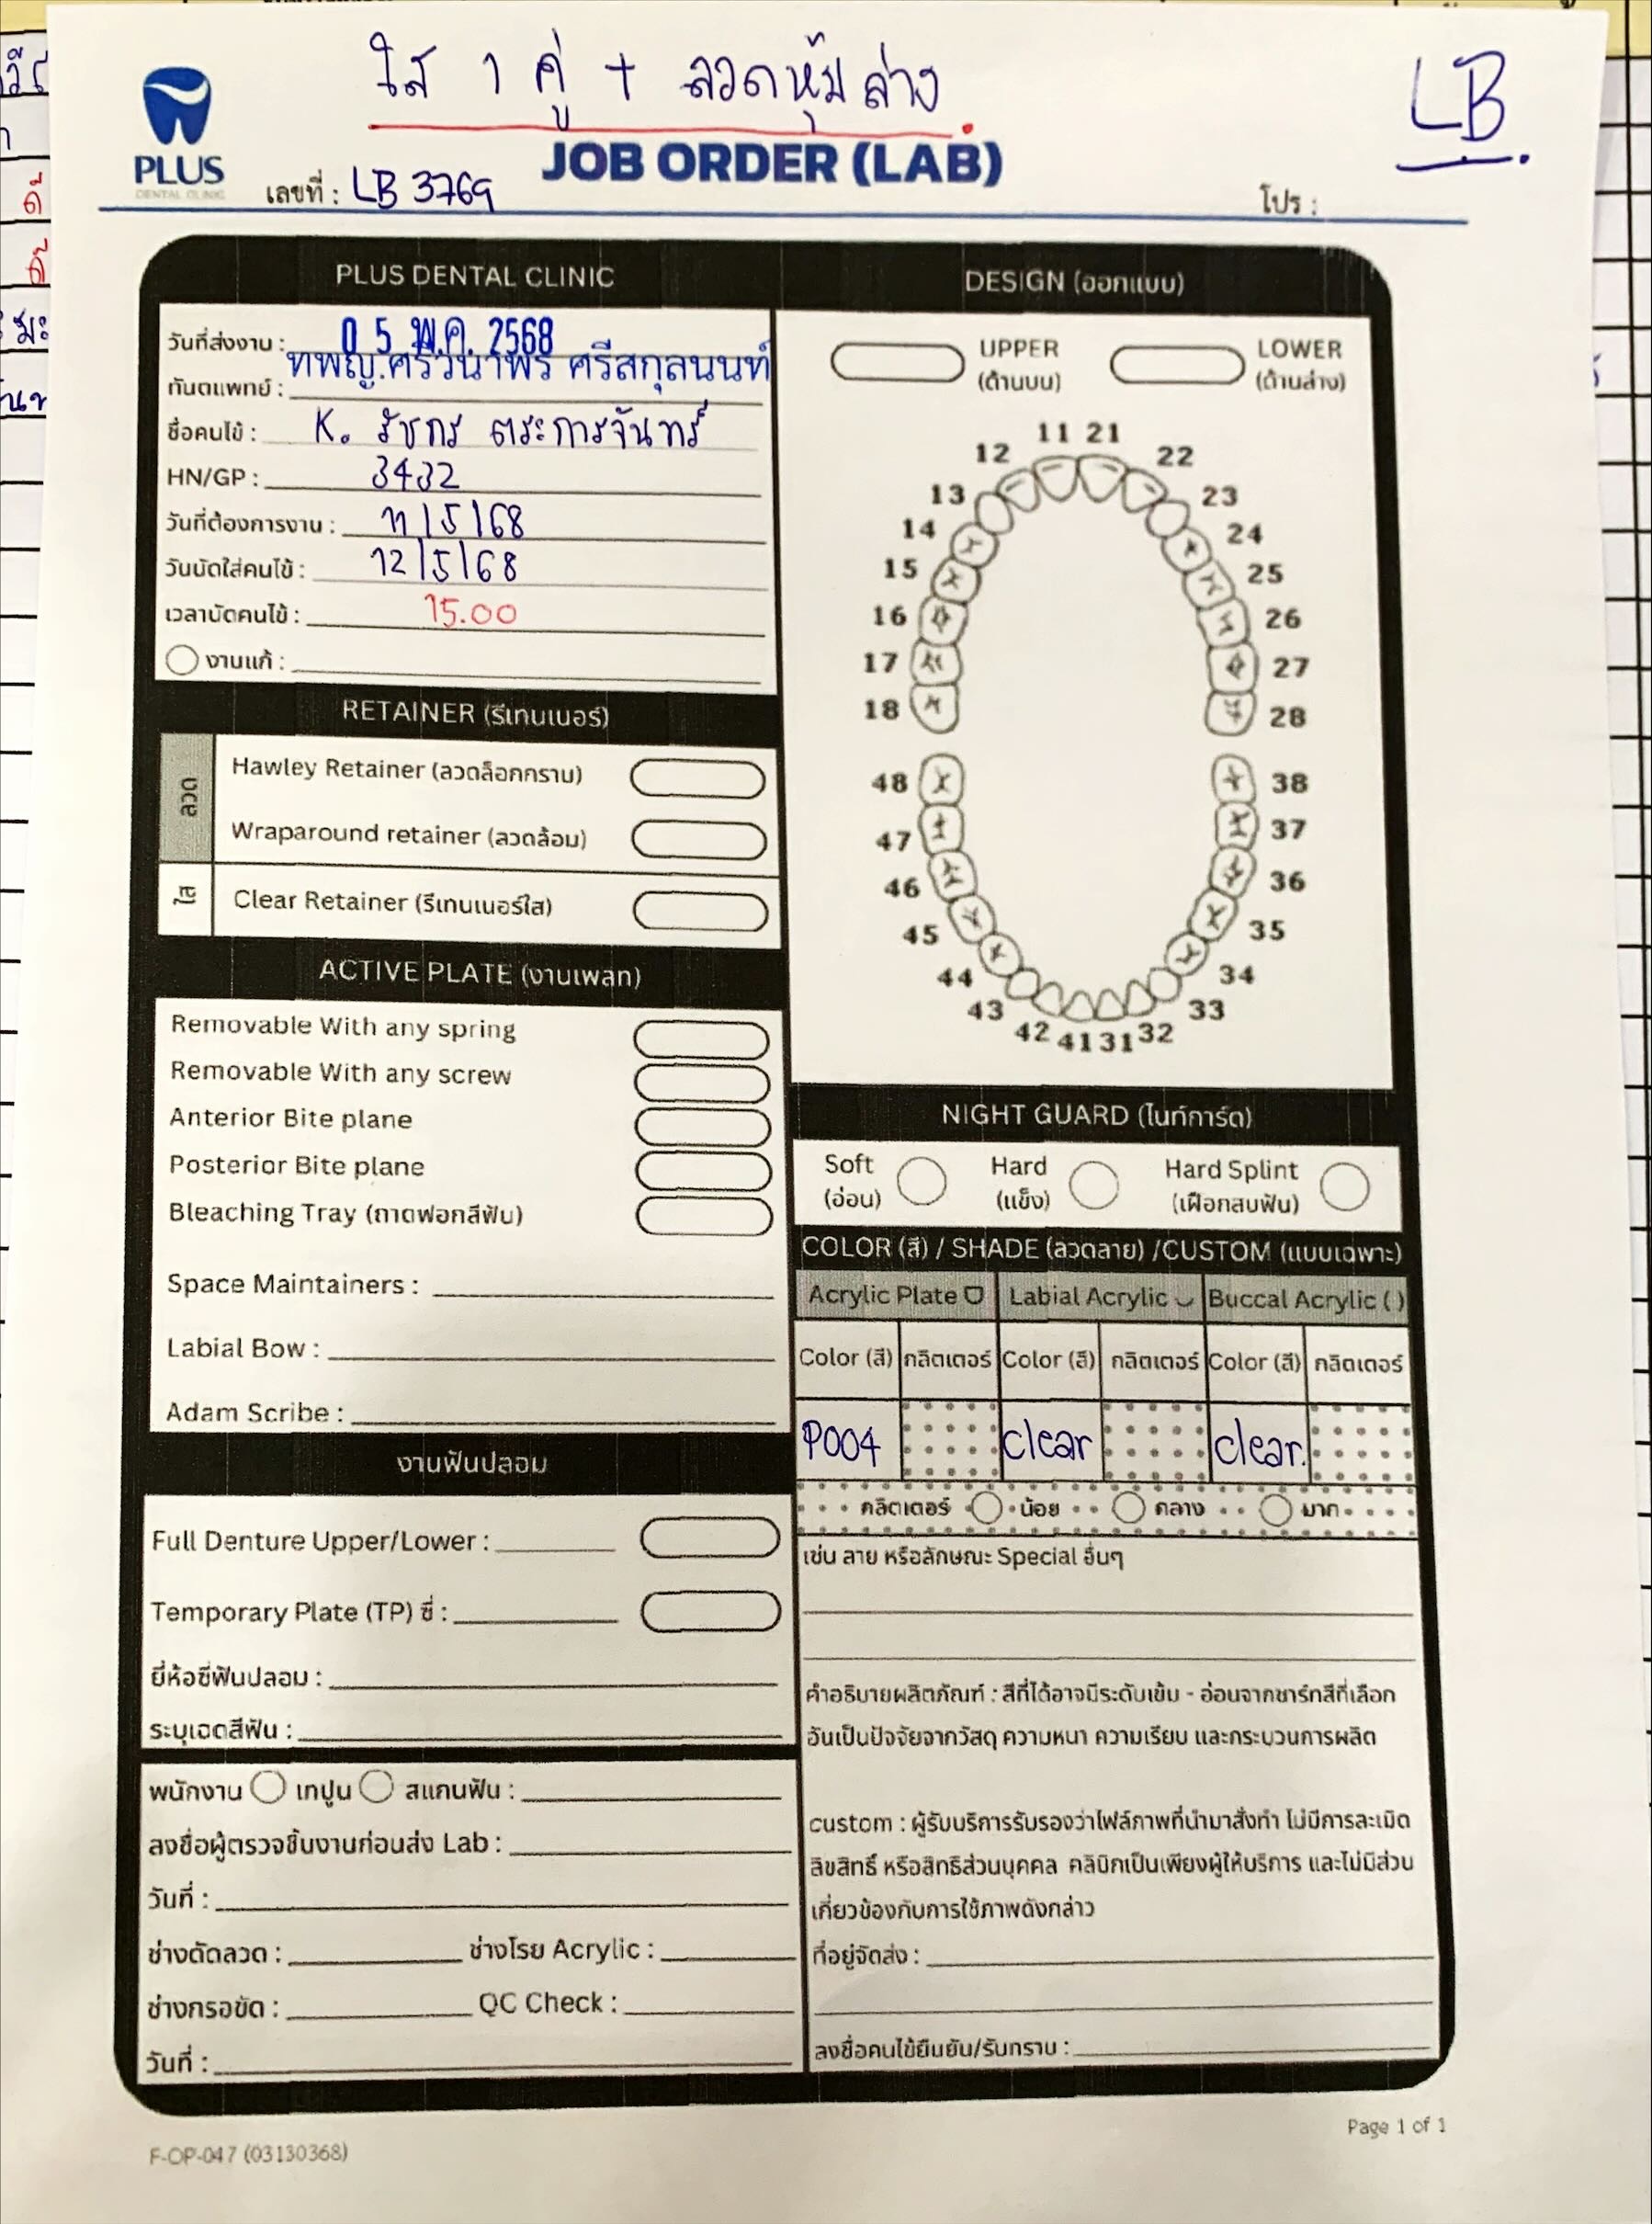 ใส 1 คู่ + ลวดหุ้มล่าง
LB
PLUS
DENTAL CLINIC
JOB ORDER (LAB)
เลขที่ : LB 3769
โปร :
PLUS DENTAL CLINIC
วันที่ส่งงาน : 05 พ.ค. 2568
ทันตแพทย์ : ทพญ. ศรีสกุลนนท์
ชื่อคนไข้ : K. รัชกร ตระการจันทร์
HN/GP : 3432
วันที่ต้องการงาน : 11/5/68
วันนัดใส่คนไข้ : 12/5/68
เวลานัดคนไข้ : 15.00
งานแก้ :
RETAINER (รีเทนเนอร์)
ลวด
Hawley Retainer (ลวดล็อกกราม)
Wraparound retainer (ลวดล้อม)
ใส
Clear Retainer (รีเทนเนอร์ใส)
ACTIVE PLATE (งานเพลท)
Removable With any spring
Removable With any screw
Anterior Bite plane
Posterior Bite plane
Bleaching Tray (ถาดฟอกสีฟัน)
Space Maintainers :
Labial Bow :
Adam Scribe :
งานฟันปลอม
Full Denture Upper/Lower :
Temporary Plate (TP) ซี่ :
ยี่ห้อซี่ฟันปลอม :
ระบุเฉดสีฟัน :
พนักงาน เทปูน สแกนฟัน :
ลงชื่อผู้ตรวจชิ้นงานก่อนส่ง Lab :
วันที่ :
ช่างดัดลวด : ช่างโรย Acrylic :
ช่างกรอขัด : QC Check :
วันที่ :
DESIGN (ออกแบบ)
UPPER LOWER
(ด้านบน) (ด้านล่าง)
11 21
12 22
13 23
14 24
15 25
16 26
17 27
18 28
48 38
47 37
46 36
45 35
44 34
43 33
42 41 31 32
NIGHT GUARD (ไนท์การ์ด)
Soft Hard Hard Splint
(อ่อน) (แข็ง) (เฝือกสบฟัน)
COLOR (สี) / SHADE (ลวดลาย) /CUSTOM (แบบเฉพาะ)
Acrylic Plate Labial Acrylic Buccal Acrylic ( )
Color (สี) กลิตเตอร์ Color (สี) กลิตเตอร์ Color (สี) กลิตเตอร์
P004 clear clear.
กลิตเตอร์ น้อย กลาง มาก
เช่น ลาย หรือลักษณะ Special อื่นๆ
คำอธิบายผลิตภัณฑ์ : สีที่ได้อาจมีระดับเข้ม - อ่อนจากชาร์ทสีที่เลือก
อันเป็นปัจจัยจากวัสดุ ความหนา ความเรียบ และกระบวนการผลิต
custom : ผู้รับบริการรับรองว่าไฟล์ภาพที่นำมาสั่งทำ ไม่มีการละเมิด
ลิขสิทธิ์ หรือสิทธิส่วนบุคคล คลินิกเป็นเพียงผู้ให้บริการ และไม่มีส่วน
เกี่ยวข้องกับการใช้ภาพดังกล่าว
ที่อยู่จัดส่ง :
ลงชื่อคนไข้ยืนยัน/รับทราบ :
Page 1 of 1
F-OP-047 (03130368)